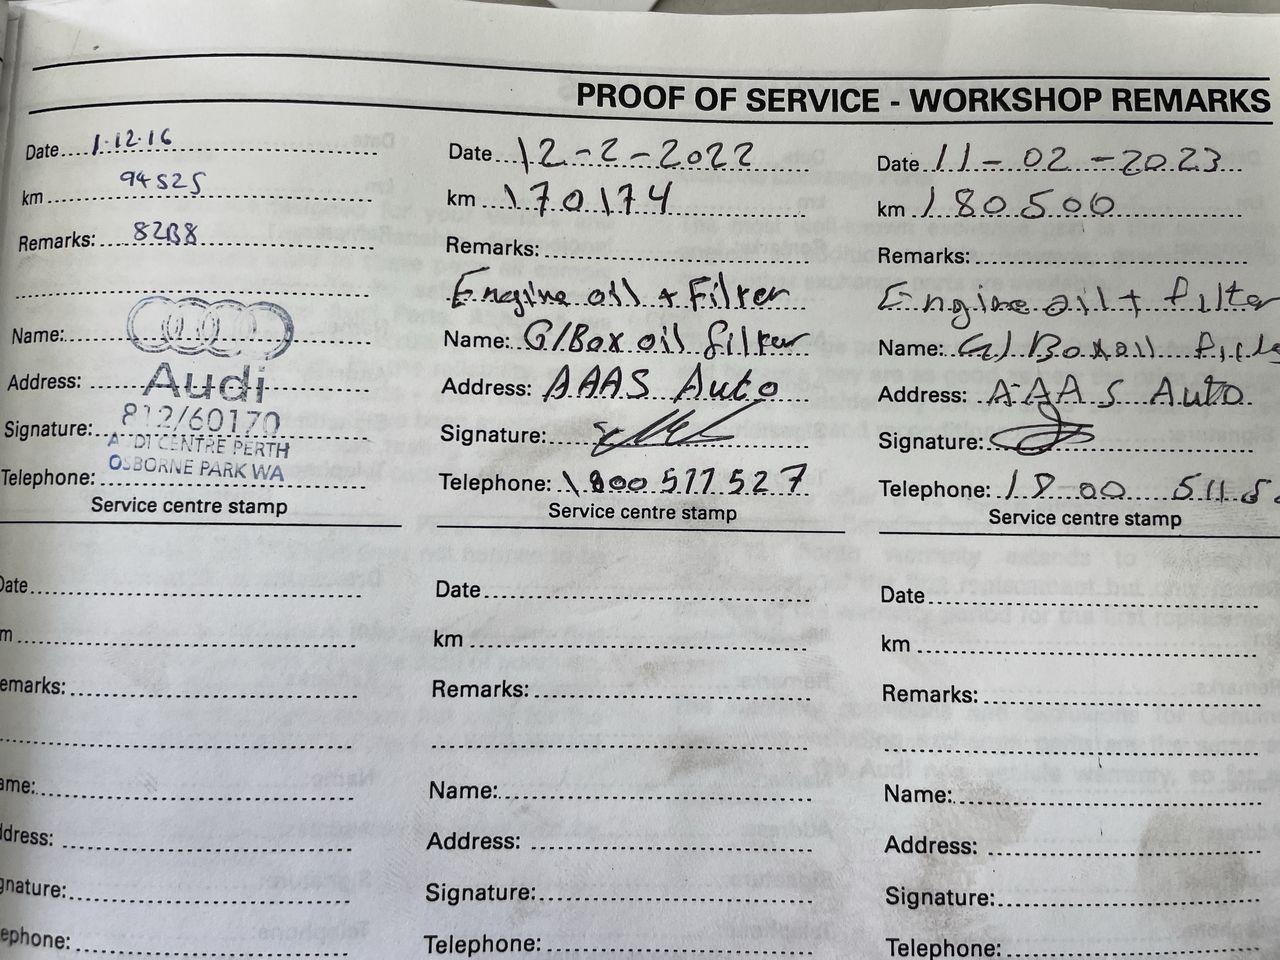 PROOF OF SERVICE - WORKSHOP REMARKS
Date 1.12.16
km 94525
Remarks: 82B8
Name:
Address: Audi
812/60170
Signature: AUDI CENTRE PERTH
OSBORNE PARK WA
Telephone:
Service centre stamp
Date 12-2-2022
km 170174
Remarks:
Engine oil + Filter
Name: G/Box oil filter
Address: AAAS Auto
Signature:
Telephone: 1800 577 527
Service centre stamp
Date 11-02-2023
km 180500
Remarks:
Engine oil + filter
Name: G/Box oil
Address: AAAS Auto
Signature:
Telephone: 1800 511 5
Service centre stamp
Date
m
emarks:
ame:
ddress:
gnature:
ephone:
Date
km
Remarks:
Name:
Address:
Signature:
Telephone:
Date
km
Remarks:
Name:
Address:
Signature:
Telephone: